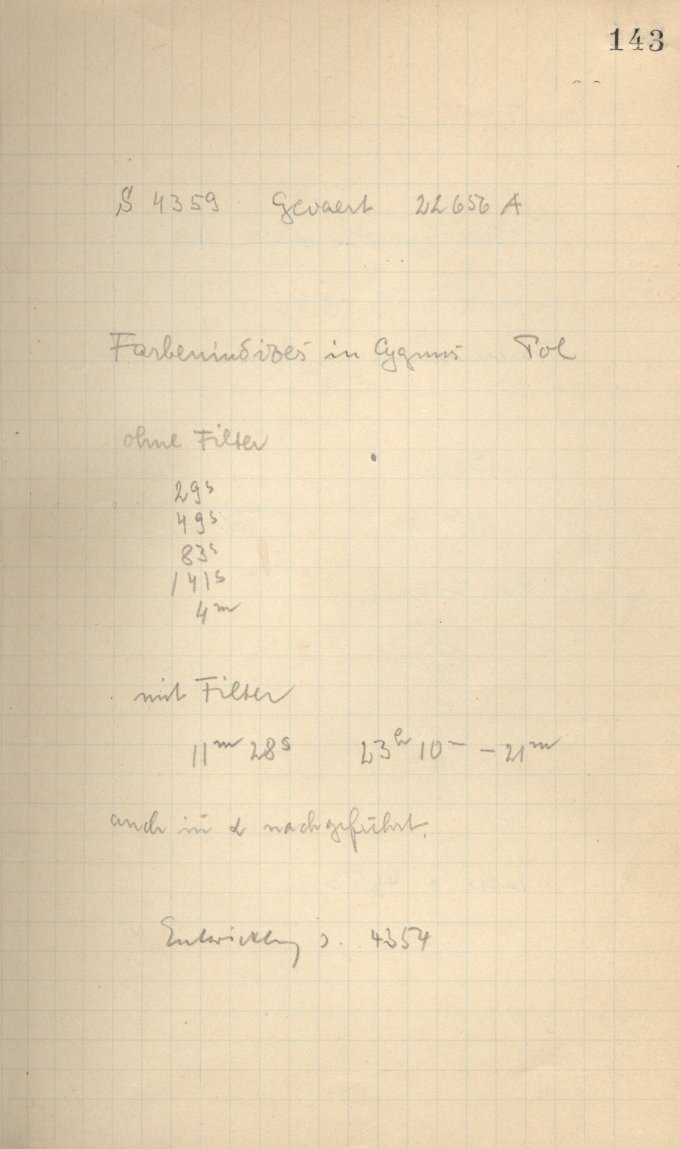 143
S 4359 Gevaert 22656 A
Farbenindizes in Cygnus Pol
ohne Filter
29ˢ
49ˢ
83ˢ
141ˢ
4ᵐ
mit Filter
11ᵐ 28ˢ 23ʰ 10ᵐ – 21ᵐ
auch in α nachgeführt.
Entwicklung s. 4354